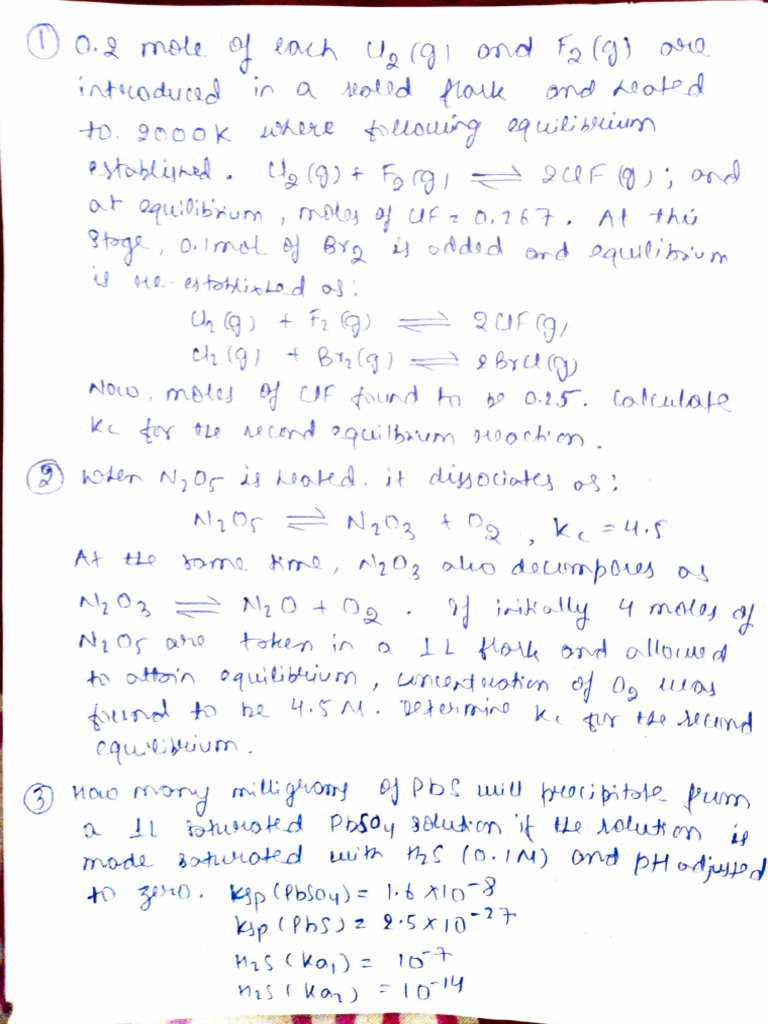 ① 0.2 mole of each Cl₂(g) and F₂(g) are
introduced in a sealed flask and heated
to. 2000K where following equilibrium
established. Cl₂(g) + F₂(g) ⇌ 2ClF(g); and
at equilibrium, moles of ClF = 0.267. At this
stage, 0.1 mol of Br₂ is added and equilibrium
is re-established as:
Cl₂(g) + F₂(g) ⇌ 2ClF(g)
Cl₂(g) + Br₂(g) ⇌ 2BrCl(g)
Now, moles of ClF found to be 0.25. Calculate
Kc for the second equilibrium reaction.
② When N₂O₅ is heated. it dissociates as:
N₂O₅ ⇌ N₂O₃ + O₂, Kc = 4.5
At the same time, N₂O₃ also decomposes as
N₂O₃ ⇌ N₂O + O₂. If initially 4 moles of
N₂O₅ are taken in a 1L flask and allowed
to attain equilibrium, concentration of O₂ was
found to be 4.5 M. Determine Kc for the second
equilibrium.
③ How many milligrams of PbS will precipitate from
a 1L saturated PbSO₄ solution if the solution is
made saturated with H₂S (0.1M) and pH adjusted
to zero. Ksp(PbSO₄) = 1.6 × 10⁻⁸
Ksp(PbS) = 2.5 × 10⁻²⁷
H₂S (Ka₁) = 10⁻⁷
H₂S (Ka₂) = 10⁻¹⁴